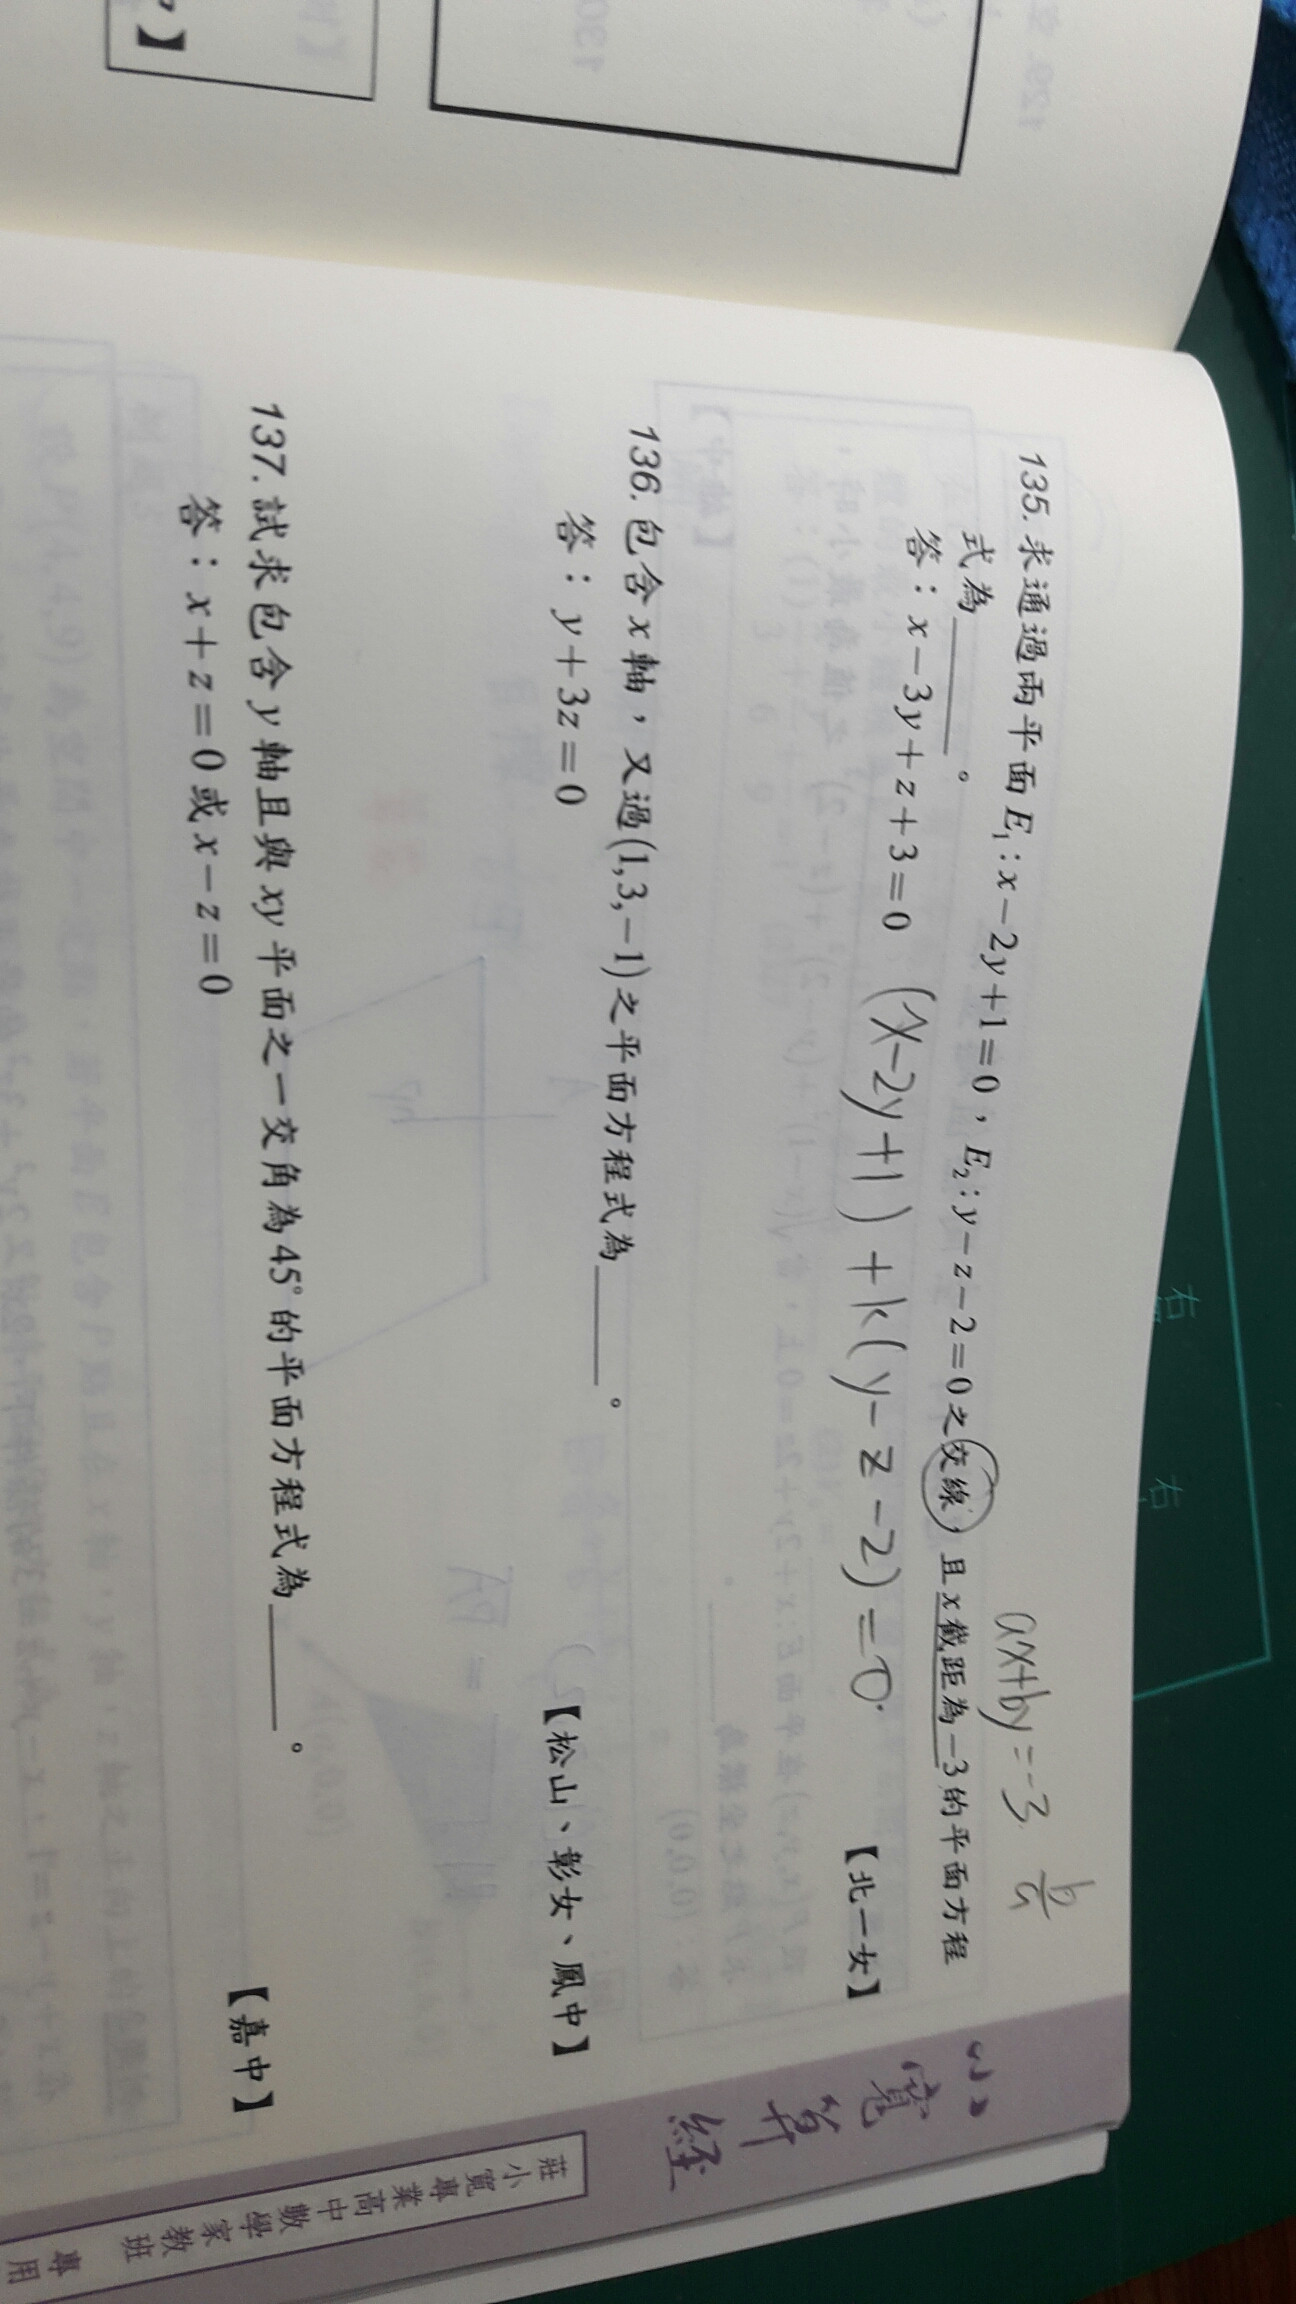 135. 求通過兩平面E₁:x－2y+1=0，E₂:y－z－2=0之交線，且x截距為－3的平面方程
式為______。
答：x－3y+z+3=0
【北一女】
ax+by=-3
b/a
(x-2y+1)+k(y-z-2)=0.
136. 包含x軸，又過(1,3,－1)之平面方程式為______。
答：y+3z=0
【松山、彰女、鳳中】
137. 試求包含y軸且與xy平面之一交角為45°的平面方程式為______。
答：x+z=0或x－z=0
【嘉中】
小寬算經
莊小寬專業高中數學家教班
專用
右
右
】